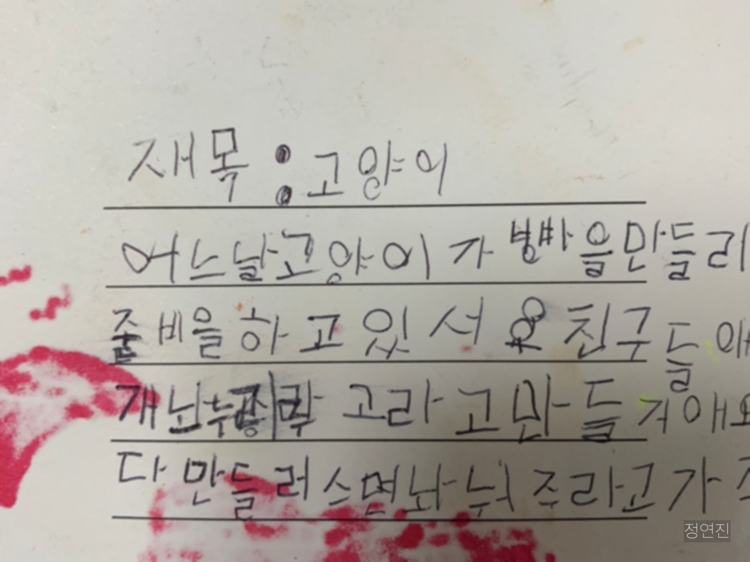 재목 : 고양이
어느날고양이가 빵을만들리
줄비을하고있서요친구들애
개 고라고만들거애요
다만들러스면나누워주라고가
정연진